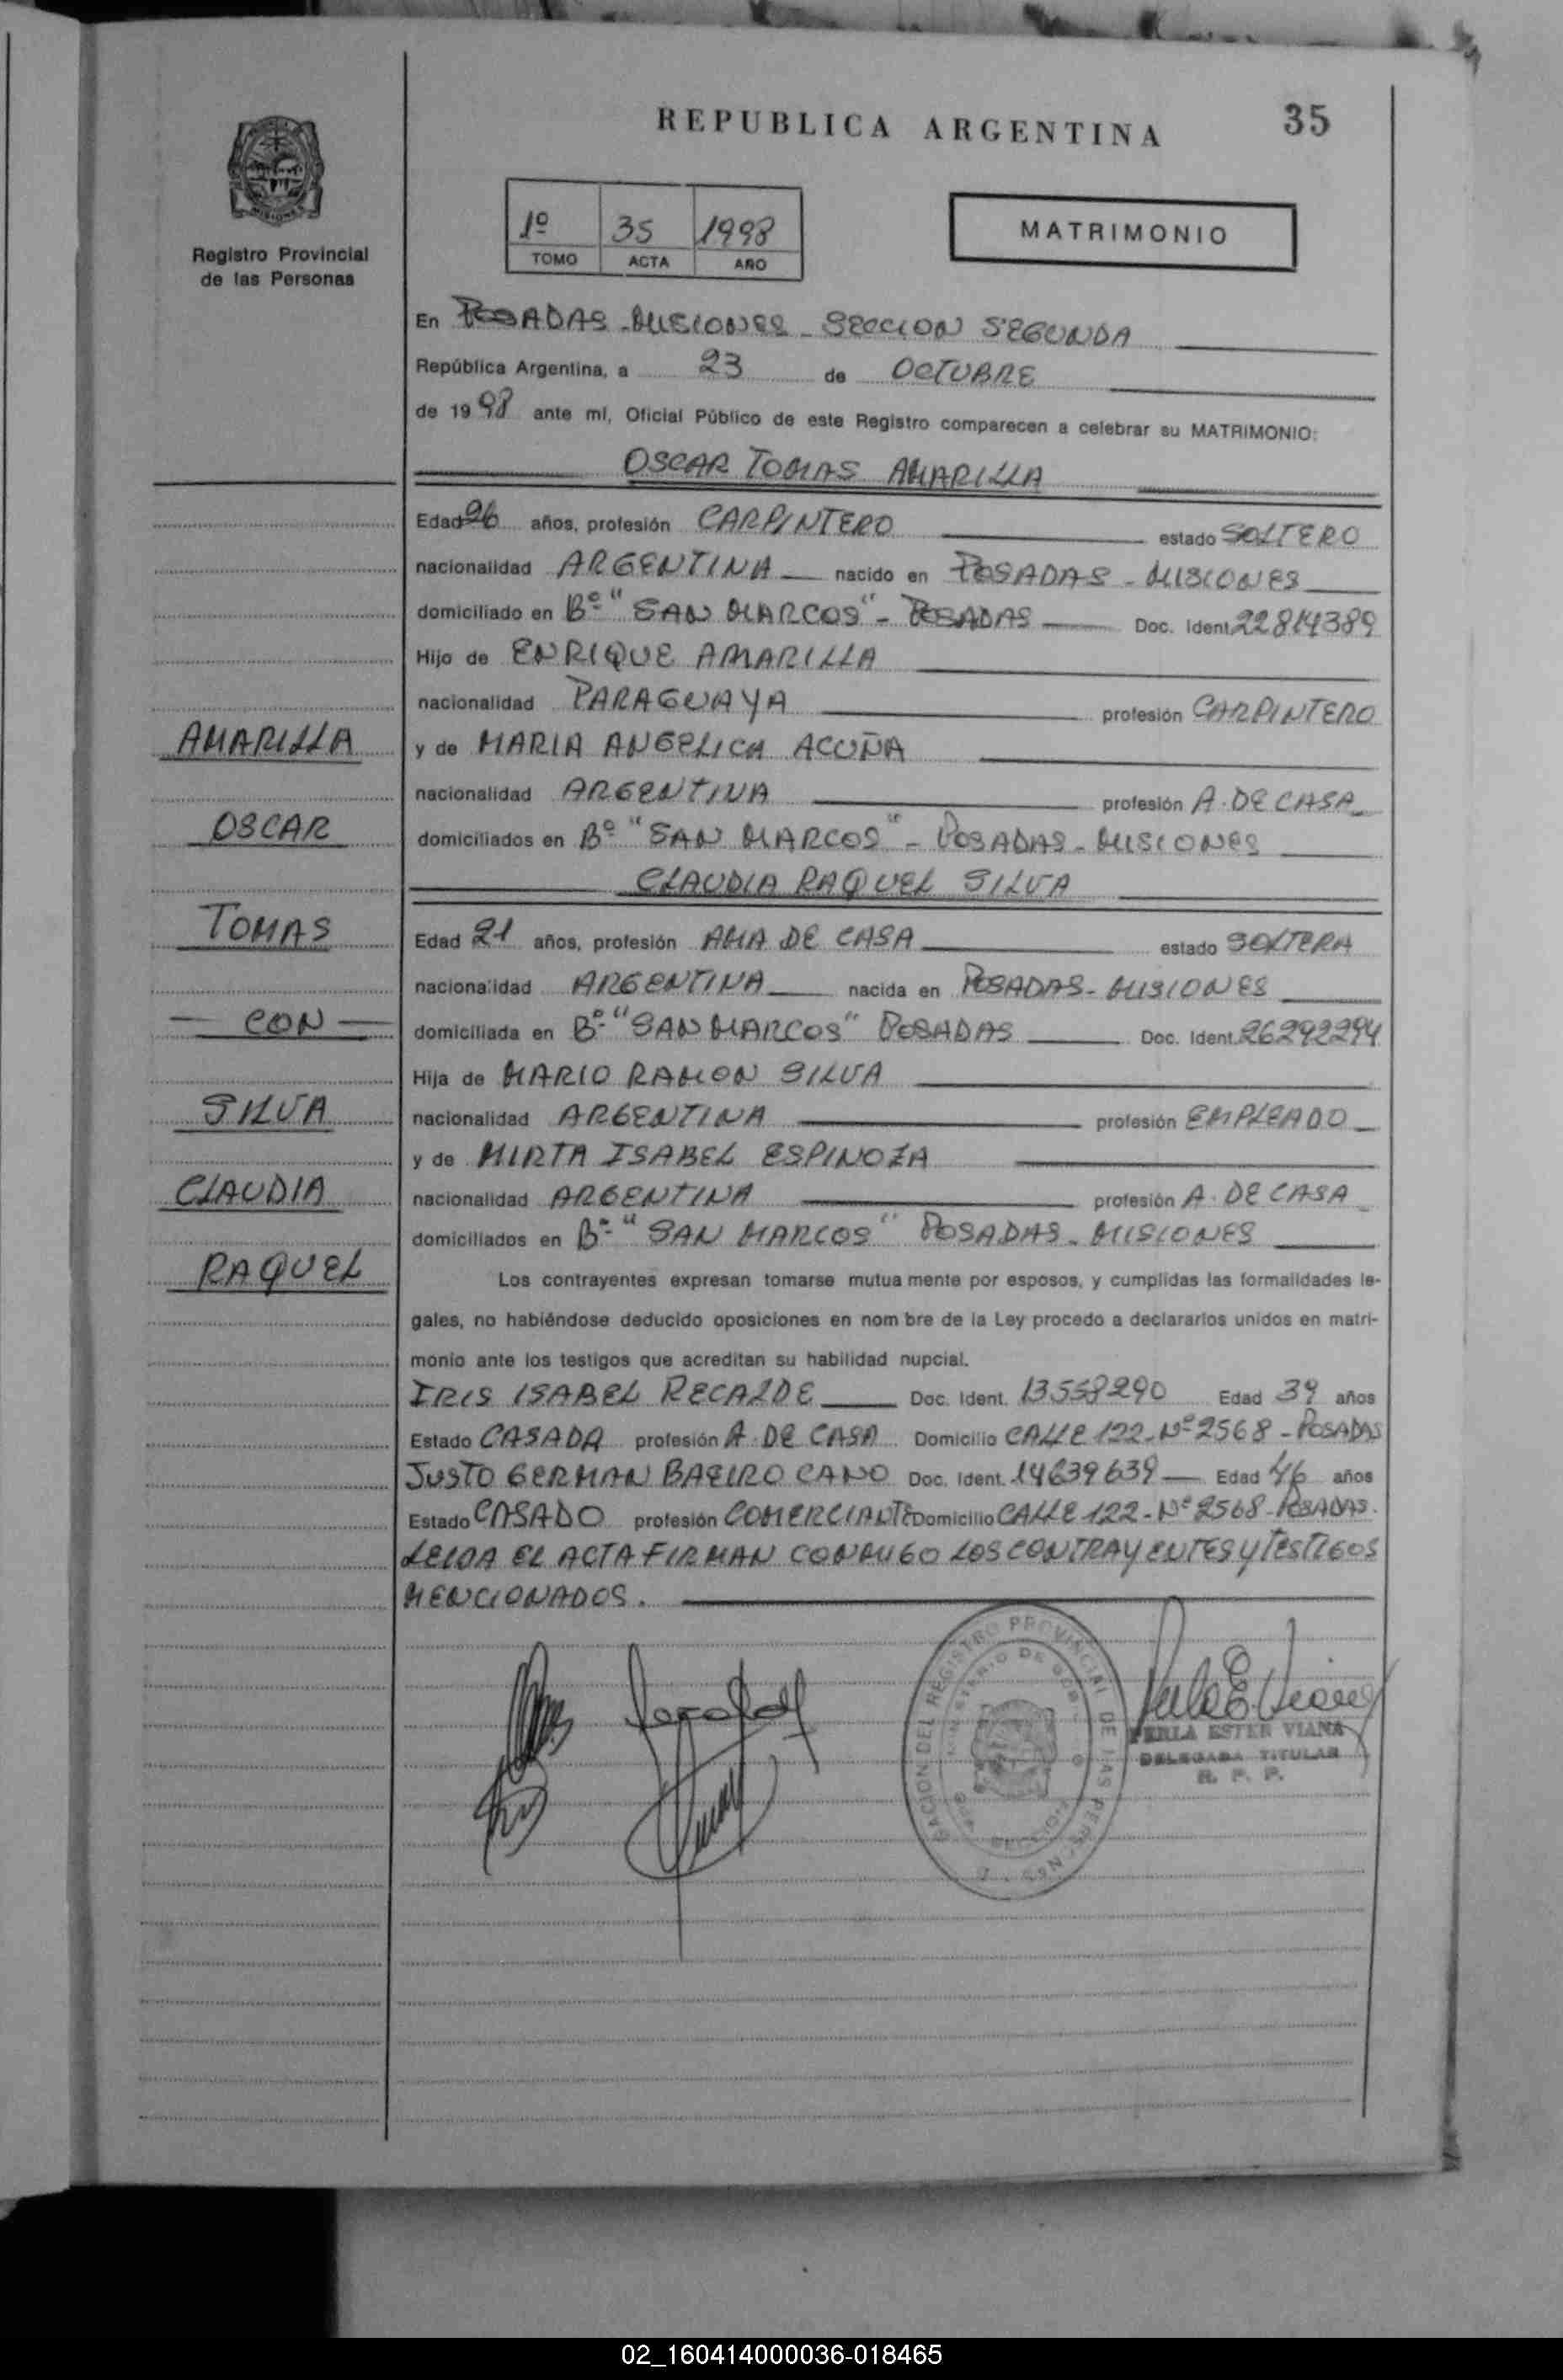 REPUBLICA ARGENTINA
35
MISIONES
Registro Provincial
de las Personas
1º 35 1998
TOMO ACTA AÑO
MATRIMONIO
En POSADAS - MISIONES - SECCION SEGUNDA
República Argentina, a 23 de OCTUBRE
de 1998 ante mí, Oficial Público de este Registro comparecen a celebrar su MATRIMONIO:
OSCAR TOMAS AMARILLA
Edad 26 años, profesión CARPINTERO estado SOLTERO
nacionalidad ARGENTINA nacido en POSADAS - MISIONES
domiciliado en Bº "SAN MARCOS" - POSADAS Doc. Ident. 22814389
Hijo de ENRIQUE AMARILLA
nacionalidad PARAGUAYA profesión CARPINTERO
y de MARIA ANGELICA ACUÑA
nacionalidad ARGENTINA profesión A. DE CASA
domiciliados en Bº "SAN MARCOS" - POSADAS - MISIONES
CLAUDIA RAQUEL SILVA
Edad 21 años, profesión AMA DE CASA estado SOLTERA
nacionalidad ARGENTINA nacida en POSADAS - MISIONES
domiciliada en Bº "SAN MARCOS" POSADAS Doc. Ident. 26292294
Hija de MARIO RAMON SILVA
nacionalidad ARGENTINA profesión EMPLEADO
y de MIRTA ISABEL ESPINOZA
nacionalidad ARGENTINA profesión A. DE CASA
domiciliados en Bº "SAN MARCOS" POSADAS - MISIONES
Los contrayentes expresan tomarse mutua mente por esposos, y cumplidas las formalidades le-
gales, no habiéndose deducido oposiciones en nom bre de la Ley procedo a declararlos unidos en matri-
monio ante los testigos que acreditan su habilidad nupcial.
IRIS ISABEL RECALDE Doc. Ident. 13558290 Edad 39 años
Estado CASADA profesión A. DE CASA Domicilio CALLE 122 - Nº 2568 - POSADAS
JUSTO GERMAN BAEIRO CANO Doc. Ident. 14639639 Edad 46 años
Estado CASADO profesión COMERCIANTE Domicilio CALLE 122 - Nº 2568 - POSADAS.
LEIDA EL ACTA FIRMAN CONMIGO LOS CONTRAYENTES Y TESTIGOS
MENCIONADOS.
AMARILLA
OSCAR
TOMAS
- CON -
SILVA
CLAUDIA
RAQUEL
PERLA ESTER VIANA
DELEGADA TITULAR
R. P. P.
02_160414000036-018465